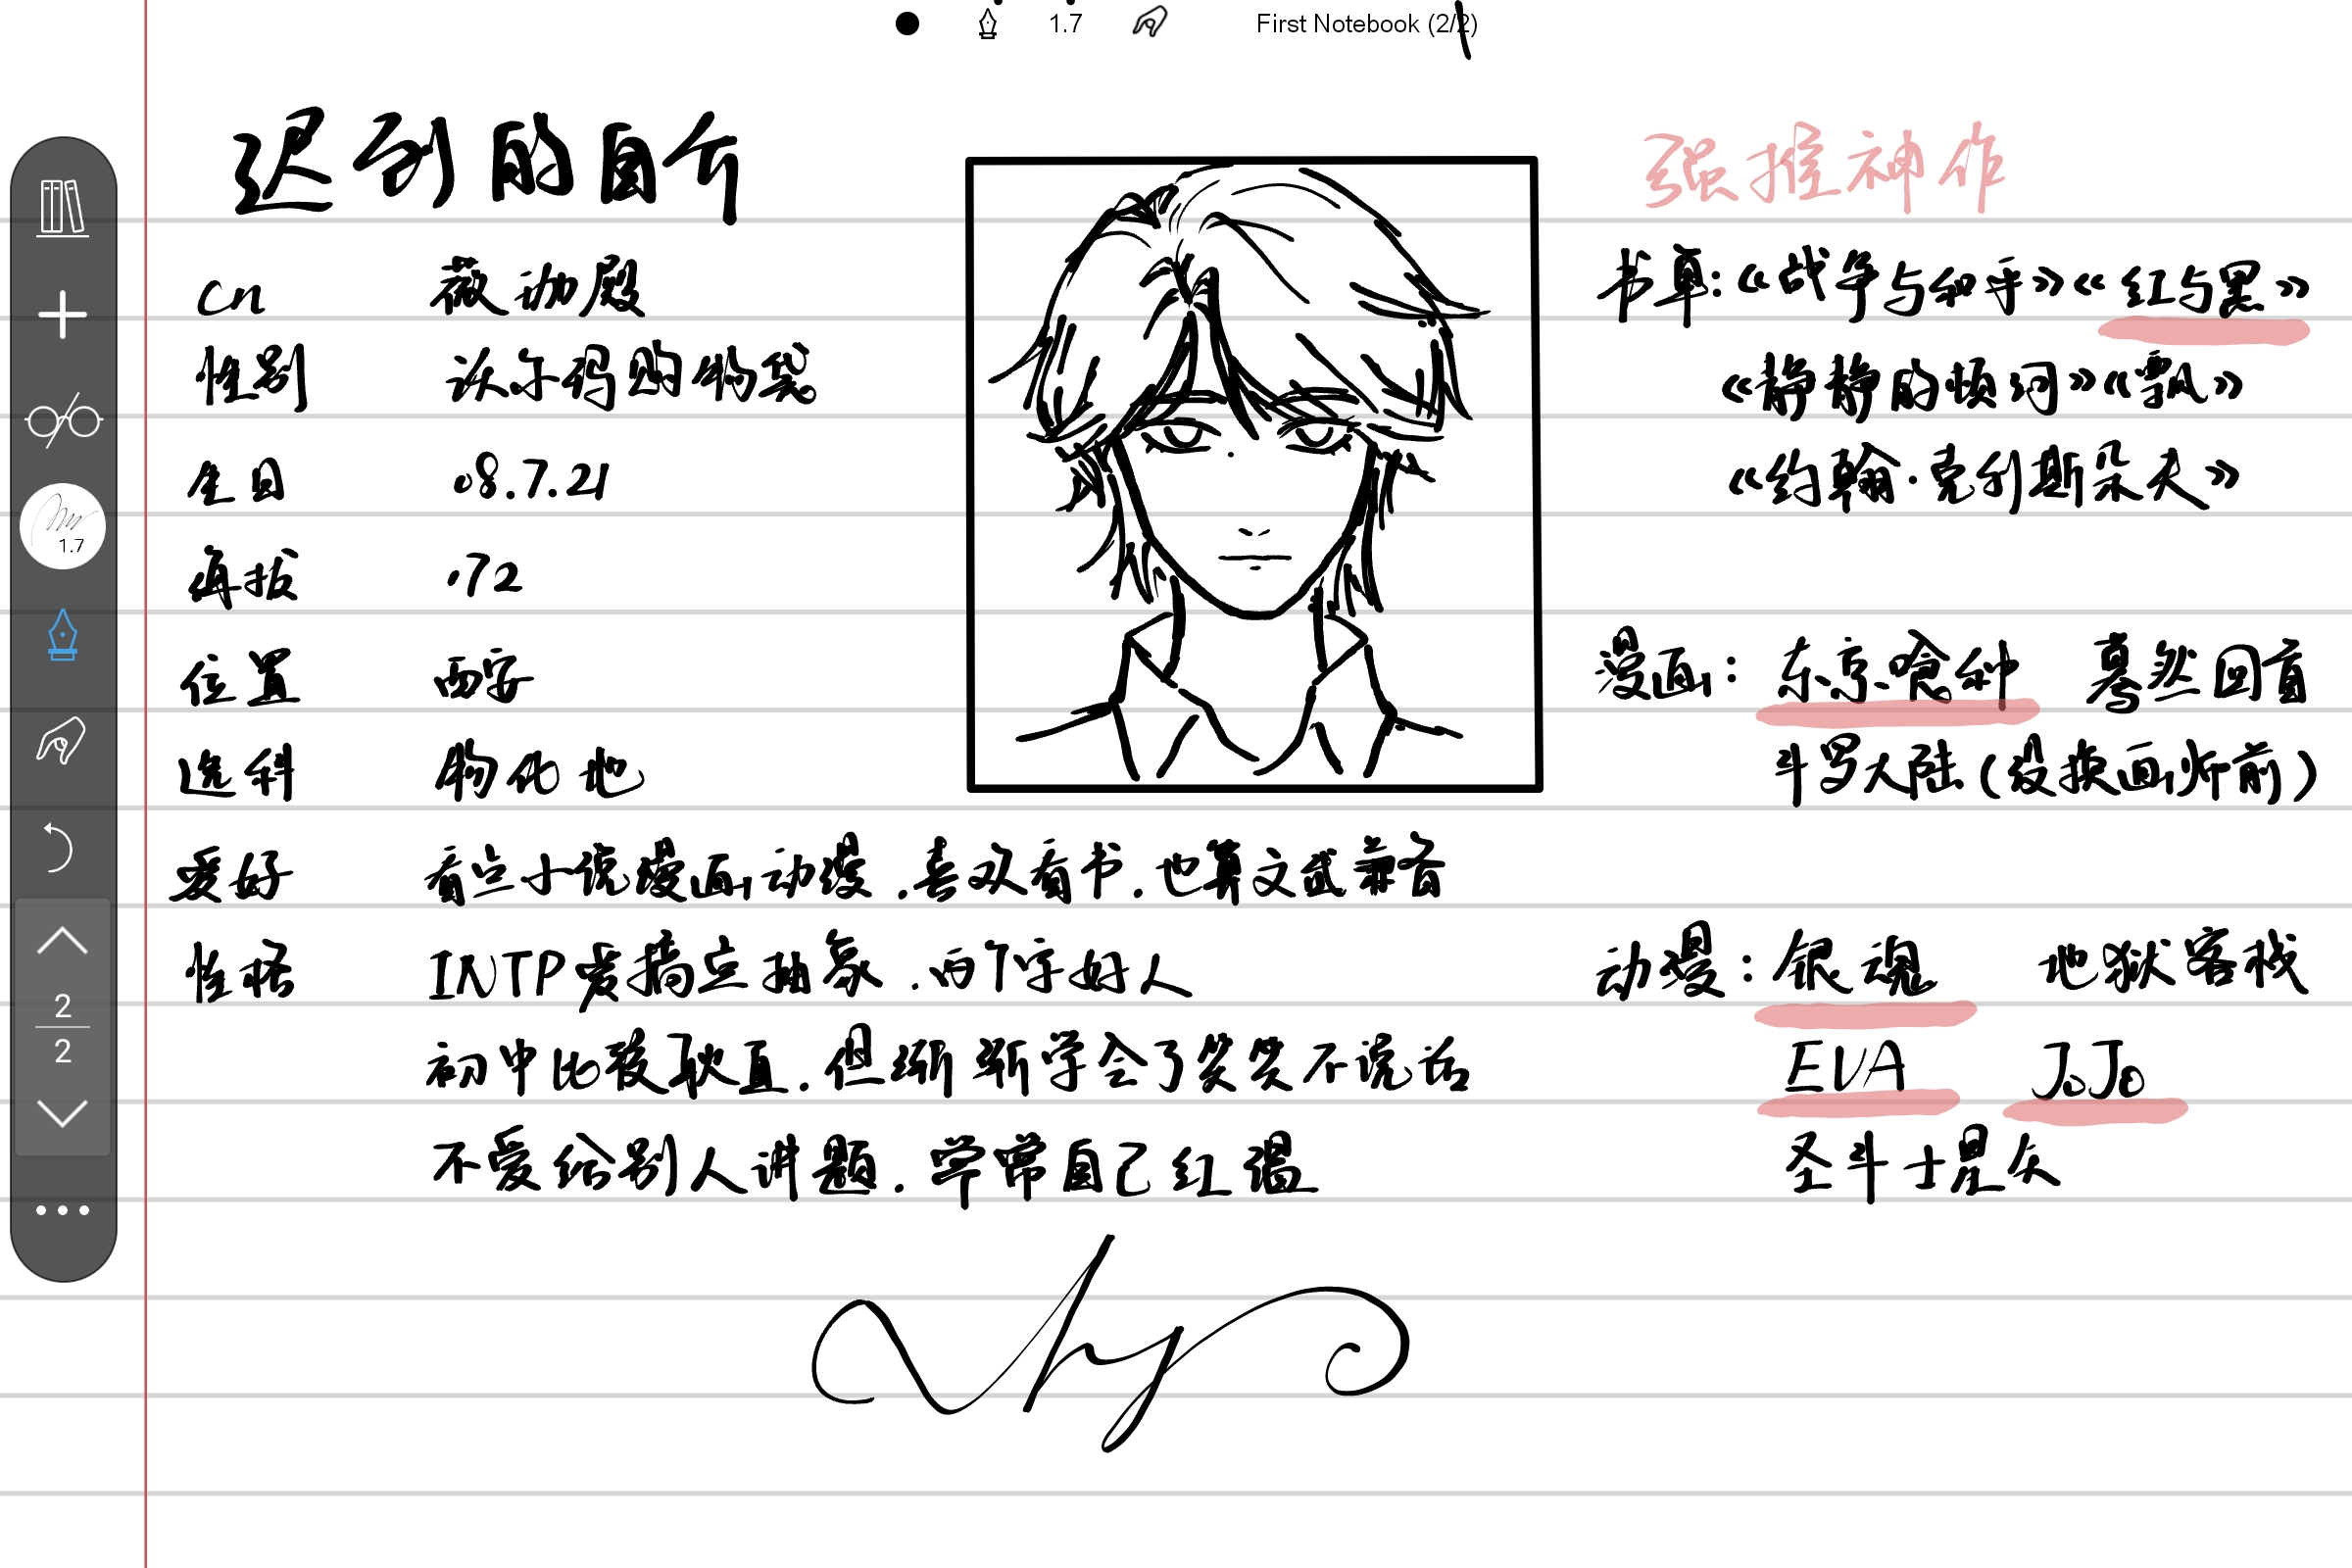 1.7 First Notebook (2/2)
迟到的自介
cn 薇泇殿
性别 沃尔玛购物袋
生日 08.7.21
海拔 172
位置 西安
选科 物化地
爱好 看点小说漫画动漫.喜欢看书.也算文武兼备
性格 INTP爱搞点抽象.两个字好人
初中比较耿直.但渐渐学会了笑笑不说话
不爱给别人讲题.常常自己红温
强推神作
书单:《战争与和平》《红与黑》
《静静的顿河》《飘》
《约翰·克利斯朵夫》
漫画: 东京喰种 蓦然回首
斗罗大陆(没换画师前)
动漫: 银魂 地狱客栈
EVA JoJo
圣斗士星矢
1.7
2
2